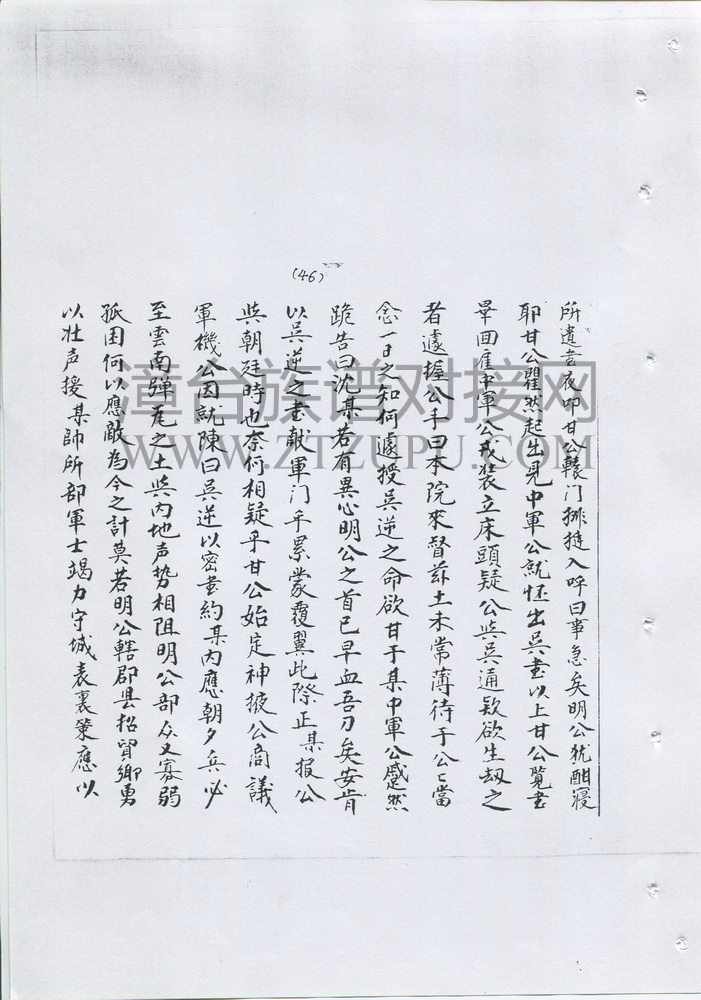 (46)
所遺書夜叩甘公轅门排撻入呼曰事急矣明公犹酣寢
耶甘公瞿然起出見中軍公就怀出吳書以上甘公覧書
畢回雇中軍公戎装立床頭疑公與吳通欵欲生劫之
者遽握公手曰本院來督茲土未常薄待于公〻當
念一日之知何遽授吳逆之命欲甘于某中軍公蹙然
跪告曰沈某若有異心明公之首已早血吾刀矣安肯
以吳逆之書献軍门乎累蒙覆翼此際正某报公
與朝廷時也奈何相疑乎甘公始定神掖公商議
軍機公因就陳曰吳逆以密書約某内應朝夕兵必
至雲南弹丸之土與内地声势相阻明公部众又寡弱
孤困何以應敵為今之計莫若明公轄郡县招習鄉勇
以壮声援某帥所部軍士竭力守城表裏策應以
漳台族谱对接网
WWW.ZTZUPU.COM